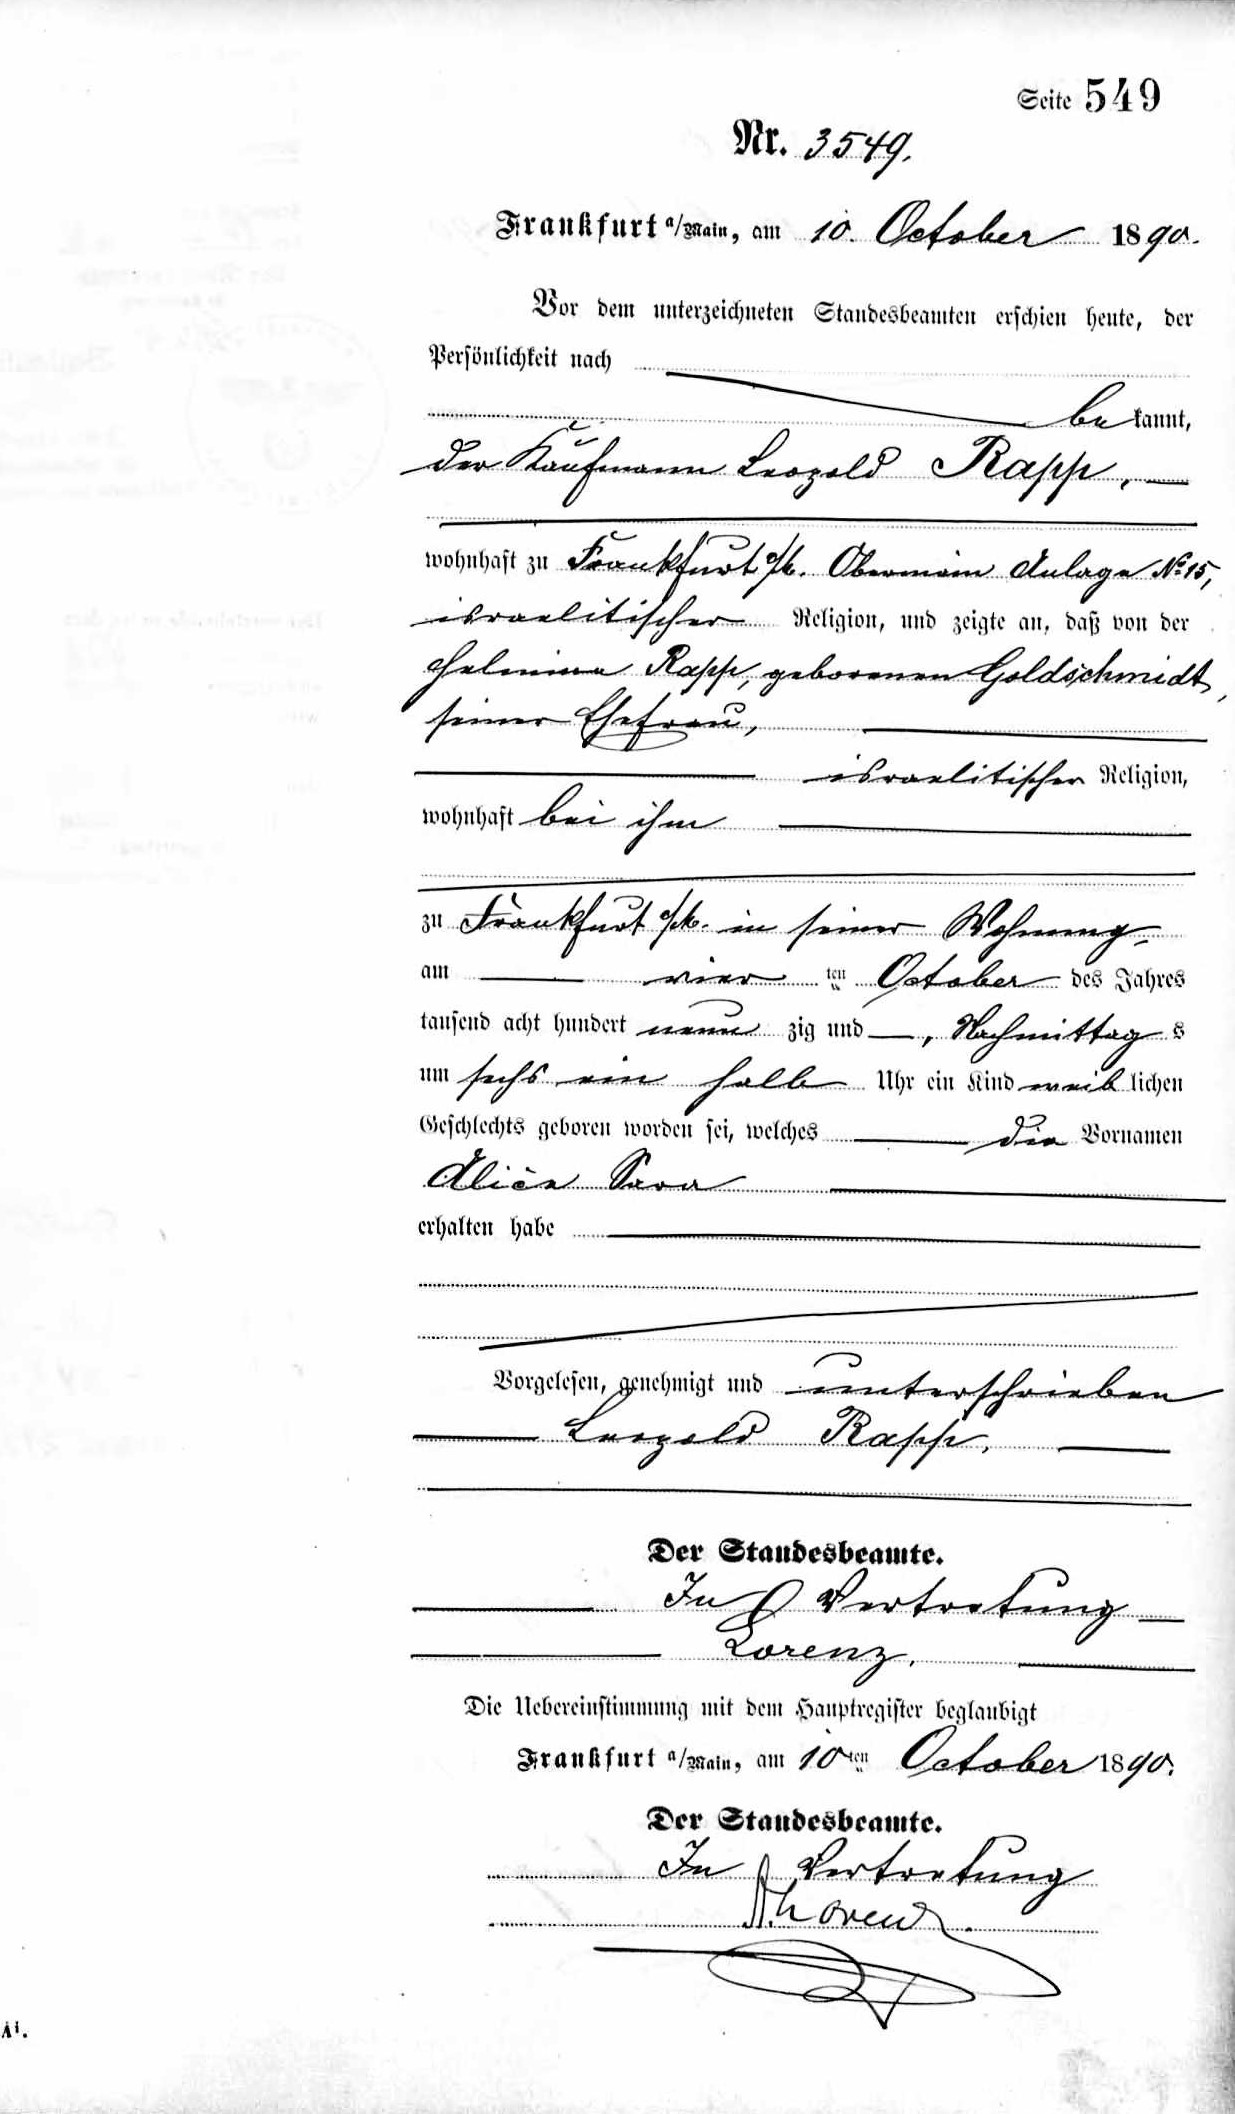 Seite 549
Nr. 3549.
Frankfurt a/Main, am 10. October 1890.
Vor dem unterzeichneten Standesbeamten erschien heute, der
Persönlichkeit nach
be kannt,
der Kaufmann Leopold Rapp,
wohnhaft zu Frankfurt a/M. Obermain Anlage No 15,
israelitischer Religion, und zeigte an, daß von der
Helmina Rapp, geborenen Goldschmidt,
seiner Ehefrau,
israelitischer Religion,
wohnhaft bei ihm
zu Frankfurt a/M. in seiner Wohnung,
am vier ten October des Jahres
tausend acht hundert neun zig und , Nachmittag s
um sechs ein halb Uhr ein Kind weib lichen
Geschlechts geboren worden sei, welches die Vornamen
Alice Sara
erhalten habe
Vorgelesen, genehmigt und unterschrieben
Leopold Rapp.
Der Standesbeamte.
In Vertretung
Lorenz.
Die Uebereinstimmung mit dem Hauptregister beglaubigt
Frankfurt a/Main, am 10 ten October 1890.
Der Standesbeamte.
In Vertretung
Lorenz.
A1.